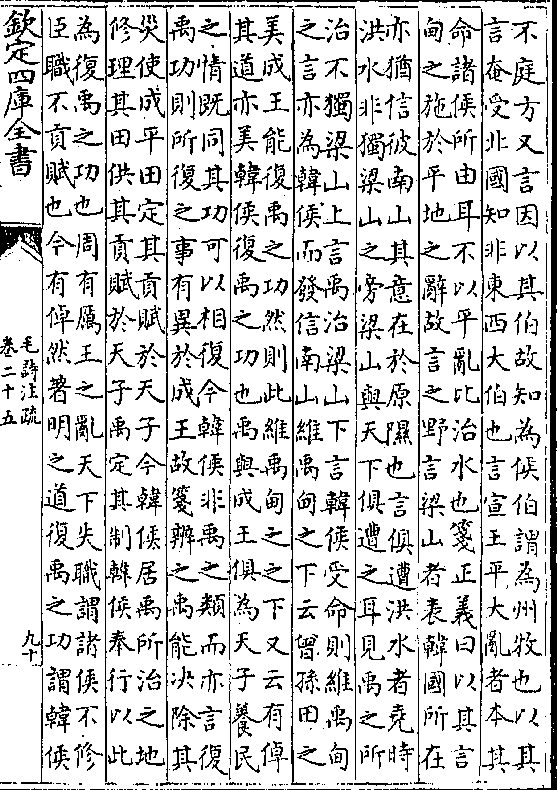 不庭方又言因以其伯故知為侯伯謂為州牧也以其
言奄受北國知非東西大伯也言宣王平大亂者本其
命諸侯所由耳不以平亂比治水也箋正義曰以其言
甸之施於平地之辭故言之野言梁山者表韓國所在
亦猶信彼南山其意在於原隰也言俱遭洪水者堯時
洪水非獨梁山之旁梁山與天下俱遭之耳見禹之所
治不獨梁山上言禹治梁山下言韓侯受命則維禹甸
之言亦為韓侯而發信南山維禹甸之下云曾孫田之
美成王能復禹之功然則此維禹甸之之下又云有倬
其道亦美韓侯復禹之功也禹與成王俱為天子養民
之情既同其功可以相復今韓侯非禹之類而亦言復
禹功則所復之事有異於成王故箋辨之禹能決除其
災使成平田定其貢賦於天子今韓侯居禹所治之地
修理其田供其貢賦於天子禹定其制韓侯奉行以此
為復禹之功也周有厲王之亂天下失職謂諸侯不修
臣職不貢賦也今有倬然著明之道復禹之功謂韓侯
欽定四庫全書
毛詩注疏
卷二十五
九十